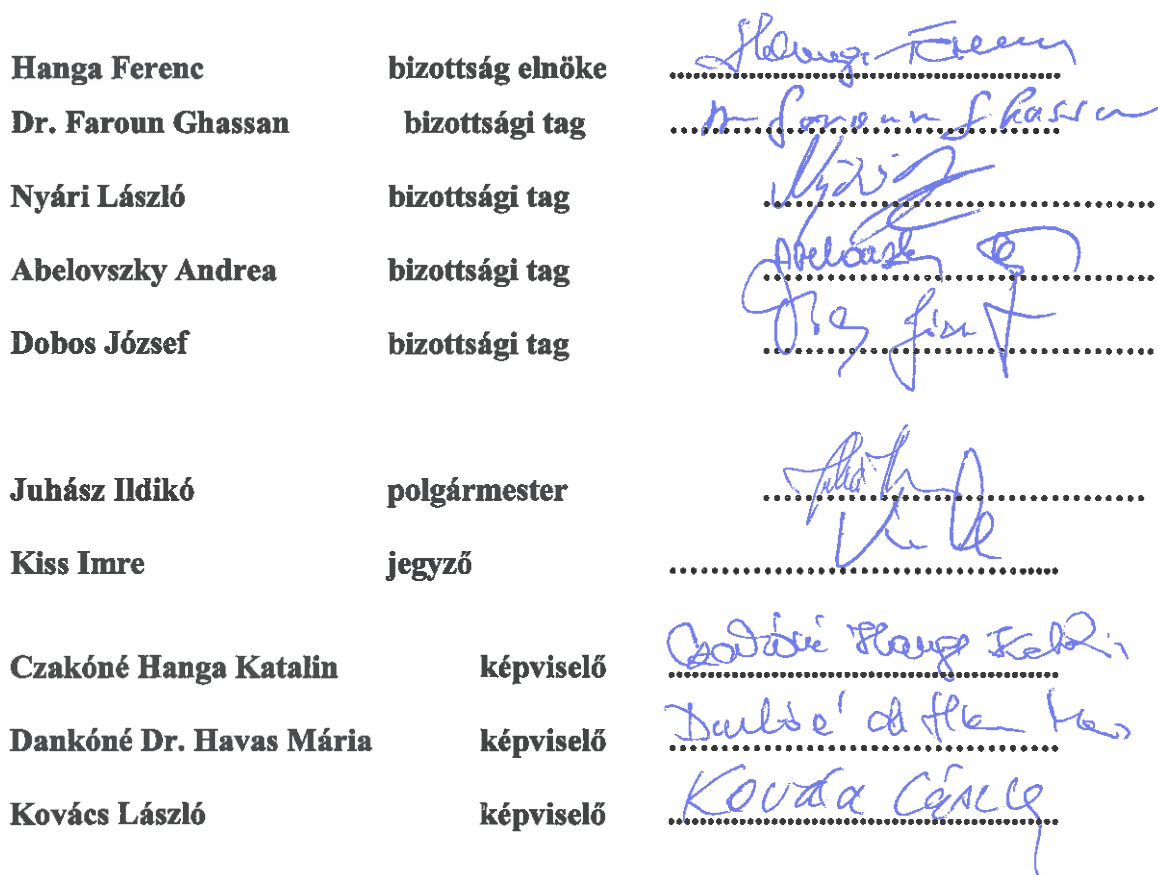 Hanga Ferenc bizottság elnöke Hanga Ferenc
Dr. Faroun Ghassan bizottsági tag Dr Faroun Ghassan
Nyári László bizottsági tag Nyári
Abelovszky Andrea bizottsági tag Abelovszky
Dobos József bizottsági tag József
Juhász Ildikó polgármester
Kiss Imre jegyző
Czakóné Hanga Katalin képviselő Czakóné Hanga Katalin
Dankóné Dr. Havas Mária képviselő Dankóné dr Havas Mária
Kovács László képviselő Kovács László